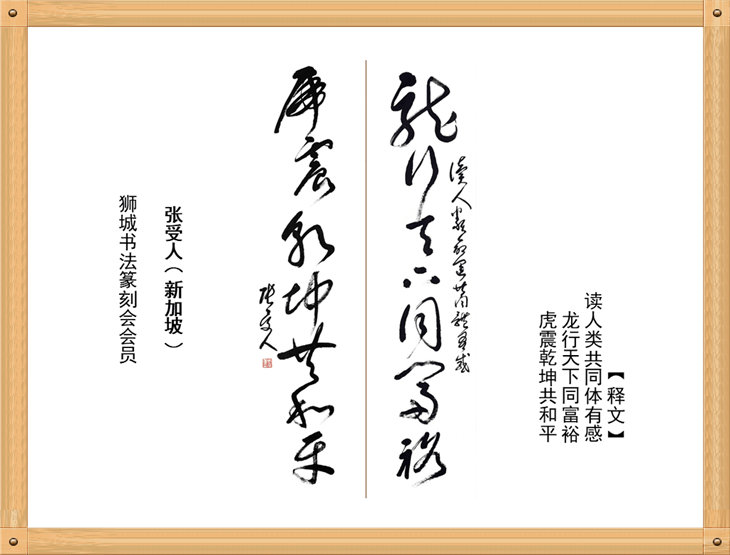 【释文】
读人类共同体有感
龙行天下同富裕
虎震乾坤共和平
讀人類命運共同體有感
龍行天下同富裕
虎震乾坤共和平
張受人
张受人（新加坡）
狮城书法篆刻会会员